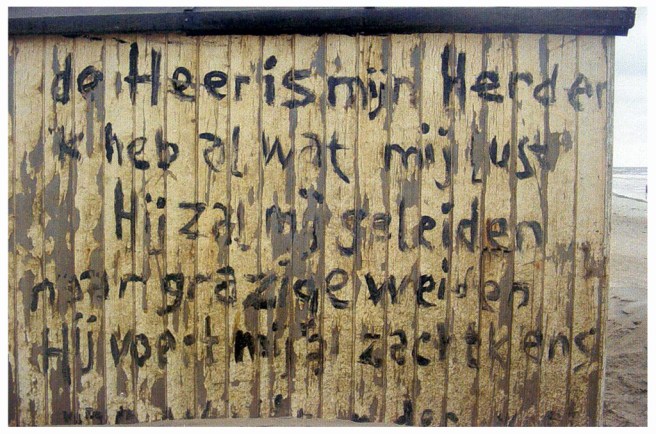 de Heer is mijn Herder
'k heb al wat mij lust
Hij zal mij geleiden
naar grazige weiden
Hij voert mij al zachtkens